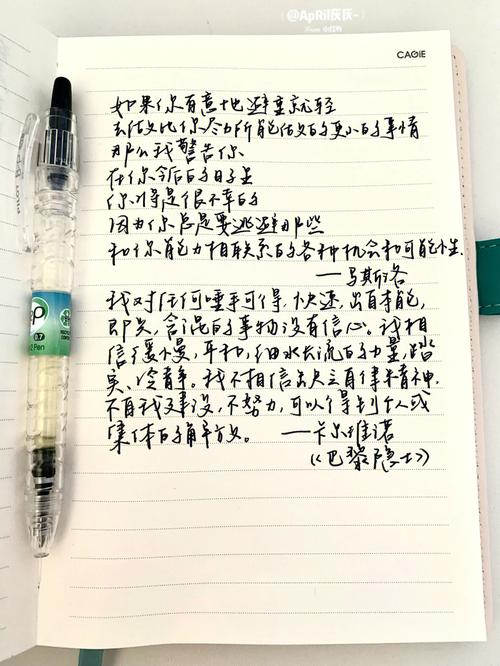 @ApRil庆庆~
From 小红书
CAGIE
如果你有意地避重就轻
去做比你尽力所能做的更小的事情
那么我警告你
在你今后的日子里
你将是很不幸的
因为你总是要逃避那些
和你能力相联系的各种机会和可能性.
——马斯洛
我对任何唾手可得,快速,出自本能,
即兴,含混的事物没有信心。我相
信缓慢,平和,细水长流的力量,踏
实,冷静。我不相信缺乏自律精神,
不自我建设,不努力,可以得到个人或
集体的解放。 ——卡尔维诺
《巴黎隐士》
PILOT
0.7
2 Pen